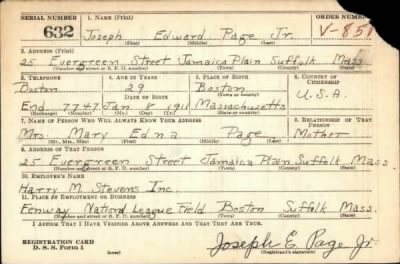 SERIAL NUMBER 1. NAME (Print) ORDER NUMBER
632 Joseph Edward Page Jr. V-851
(First) (Middle) (Last)
2. ADDRESS (Print)
25 Evergreen Street Jamaica Plain Suffolk Mass
(Number and street or R. F. D. number) (Town) (County) (State)
3. TELEPHONE 4. AGE IN YEARS 5. PLACE OF BIRTH 6. COUNTRY OF CITIZENSHIP
Boston 29 Boston
DATE OF BIRTH (Town or county) U.S.A.
End 7747 Jan 8 1911 Massachusetts
(Exchange) (Number) (Mo.) (Day) (Yr.) (State or country)
7. NAME OF PERSON WHO WILL ALWAYS KNOW YOUR ADDRESS 8. RELATIONSHIP OF THAT PERSON
Mrs. Mary Edna Page Mother
(Mr., Mrs., Miss) (First) (Middle) (Last)
9. ADDRESS OF THAT PERSON
25 Evergreen Street Jamaica Plain Suffolk Mass
(Number and street or R. F. D. number) (Town) (County) (State)
10. EMPLOYER'S NAME
Harry M. Stevens Inc
11. PLACE OF EMPLOYMENT OR BUSINESS
Fenway National League Field Boston Suffolk Mass.
(Number and street or R. F. D. number) (Town) (County) (State)
I AFFIRM THAT I HAVE VERIFIED ABOVE ANSWERS AND THAT THEY ARE TRUE.
REGISTRATION CARD
D. S. S. Form 1 Joseph E. Page Jr.
(Registrant's signature)